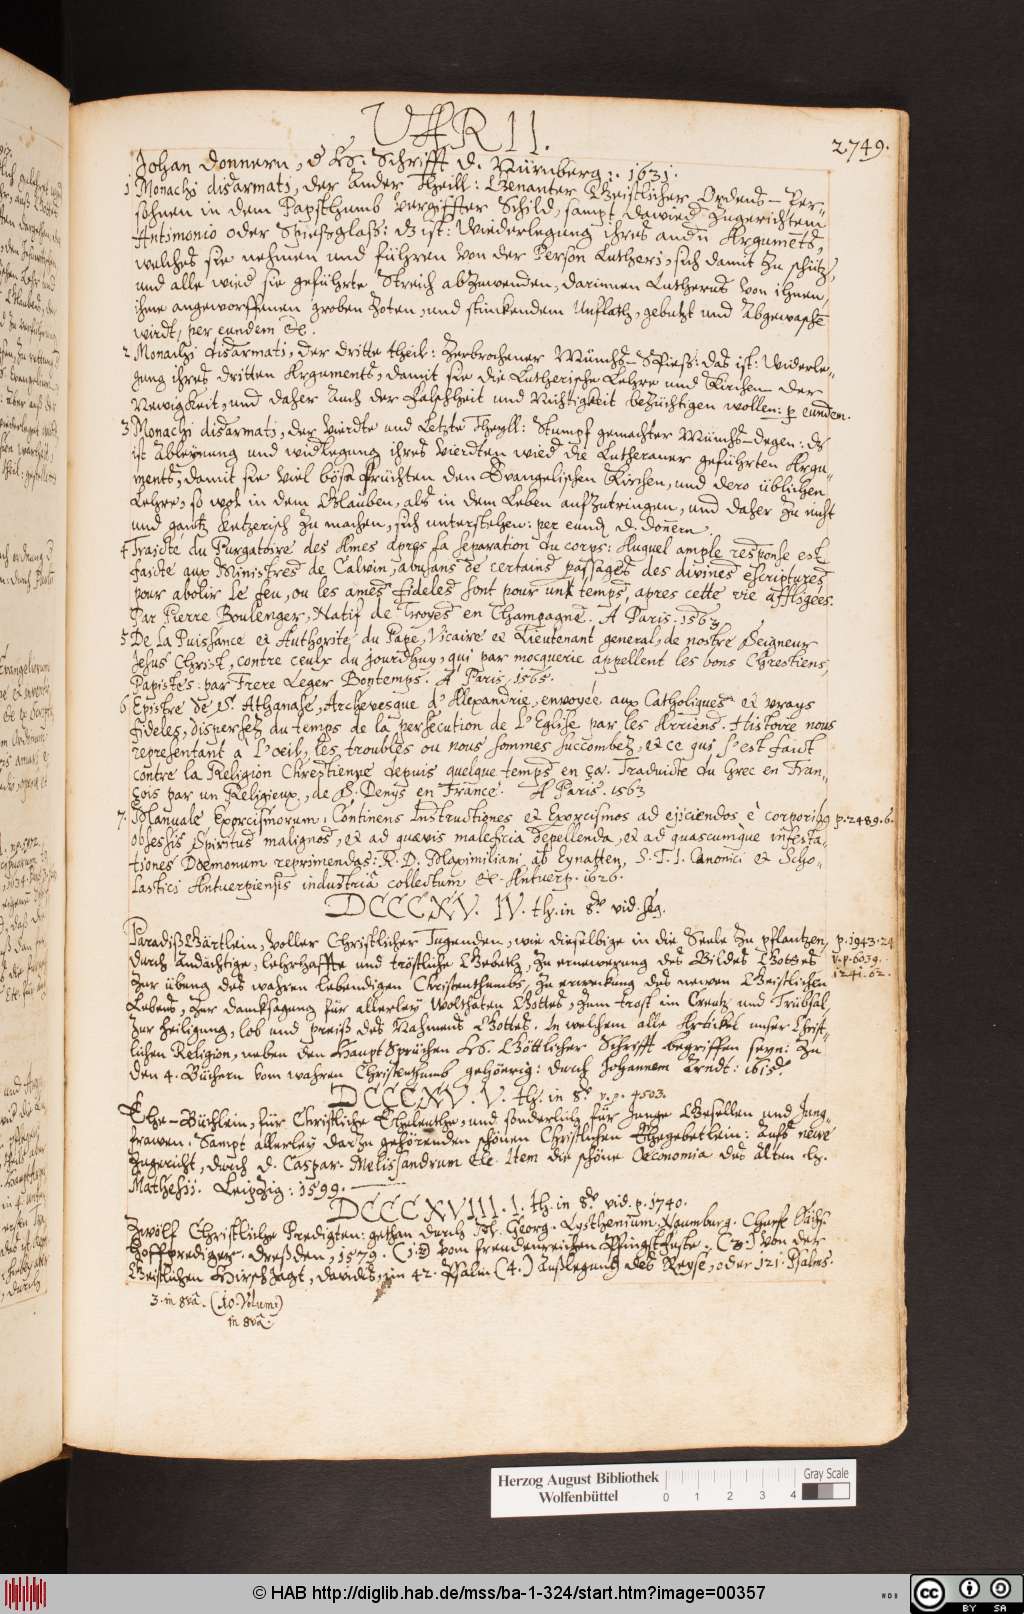 VARII.
2749.
Johan Donnern, d H. Schrifft D. Nürnberg. 1631.
1 Monachi disarmati, der Ander Theill: Genanter Geistlicher Ordens-Per-
sohnen in dem Papstthumb vergiffter Schild, sampt dawied zugerichtem
Antimonio oder Spießglaß: d ist: Wiederlegung ihres andn Argumets,
welches sie nehmen und führen von der Person Lutheri, sich damit zu schütz,
und alle wied sie geführte Streich abzuwenden, darinnen Lutherus von ihnen,
ihme angeworffenen groben Zoten, und stinckendem Unflath, gebutzt und Abgewasche
wirdt, per eundem &c.
2 Monachi disarmati, der dritte theil: Zerbrochener Münchs-Spieß: das ist: Widerle-
gung ihres dritten Arguments, damit sie die Lutherische Lehre und Kirchen der
Newigkeit, und daher Auch der Falschheit und Nichtigkeit bezüchtigen wollen: p eundem.
3 Monachi disarmati, der vierdte und Letzte Theyll: Stumpf gemachter Münchs-degen: ds
ist Ableynung und widlegung ihres vierdten wied die Lutheraner geführten Argu-
ments, damit sie viel böse Früchten den Evangelischen Kirchen, und dero üblichen
Lehre, so wol in dem Glauben, als in dem Leben aufzutringen, und daher zu nicht
und gantz Ketzerisch zu machen, sich unterstehen: per eund D. Donern.
4 Traicté du Purgatoire des Ames apres la separation du corps: Auquel ample response est
faicte aux Ministres de Calvin, abusans de certains passages des divines escriptures
pour abolir le feu, ou les ames fideles sont pour un temps, apres cette vie affligées.
Par Pierre Boulenger, Natif de Troyes en Champagne. A Paris. 156
5 De la Puissance et Authorité du Pape, Vicaire et Lieutenant general, de nostre Seigneur
Jesus Christ, contre ceulx du jourdhuy, qui par mocquerie appellent les bons Chrestiens,
Papistes: par Frere Leger Bontemps. A Paris, 1565.
6 Epistre de S. Athanase, Archevesque d'Alexandrie, envoyée aux Catholiques et vrays
fideles, dispersez du temps de la persecution de L'Eglise par les Arriens. Histoire nous
representant à L'oeil, les troubles ou nous sommes succombez, et ce qui s'est faict
contre la Religion Chrestienne depuis quelque temps en ça. Traduicte du Grec en Fran-
çois par un Religieux, de S. Denys en France. A Paris. 1563
7. Manuale Exorcismorum, Continens Instructiones et Exorcismos ad ejiciendos è corporib9 p. 2489. 6.
obsessis Spiritus malignos, et ad quævis maleficia depellenda, et ad quascumque infesta-
tiones Dæmonum reprimendas: R. D. Maximiliani ab Eynatten, S. T. L. Canonici et Scho-
lastici Antverpiensis industriâ collectum &c. Antverp. 1626.
DCCCXV. IV. th. in 8º vid. seq.
ParadißGärtlein, voller Christlicher Tugenden, wie dieselbige in die Seele zu pflantzen, p. 1943. 24
durch Andächtige, lehrhaffte und tröstliche Gebeth, zu ernewerung des Bildes Gottes v. p. 6059.
zur übung des wahren lebendigen Christenthumbs, zu erweckung des newen Geistlichen 1241. 62.
Lebens, zur dancksagung für allerley Wolthaten Gottes, zum trost im Creutz und Trübsal,
zur heiligung, lob und preiß des Nahmens Gottes. In welchem alle Artickel unser Christ-
lichen Religion, neben den HauptSprüchen H. Göttlicher Schrifft begriffen seyn: Zu
den 4. Büchern vom wahren Christenthumb gehöerig: durch Johannem Arndt: 1615.
DCCCXV. V. th. in 8º v. p. 4503.
Ehe-Büchlein, für Christliche Eheleuthe, und sonderlich für Junge Gesellen und Jung-
frawen. Sampt allerley darzu gehörenden schönen Christlichen Ehegebetlein: Aufs newe
zugericht, durch D. Caspar. Melissandrum &c. Item die schöne Oeconomia des Alten H.
Mathesii. Leipzig: 1599.
DCCCXVIII. I. th. in 8º vid. p. 1740.
Zwölf Christliche Predigten: gethan durch Joh. Georg. Lysthenium Naumburg. Churf. Sächs.
Hoffprediger. Dreßden, 1579. (1.) Vom freudenreichen Pfingstfeste. (3.) Von der
Geistlichen HirschJagt, Davids, im 42. Psalm (4.) Außlegung des Reyse, oder 121. Psalms.
3. in 8vâ. (10. Volum.)
in 8vâ.
Herzog August Bibliothek
Wolfenbüttel
Gray Scale
0 1 2 3 4
© HAB http://diglib.hab.de/mss/ba-1-324/start.htm?image=00357
cc BY SA